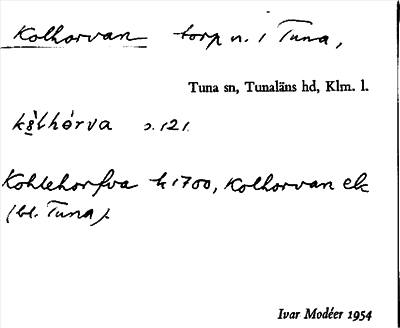 Kolhorvan torp n. i Tuna,
Tuna sn, Tunaläns hd, Klm. l.
kòlhórva s. 121.
Kohlehorfva k 1700, Kolhorvan ek
(bl. Tuna).
Ivar Modéer 1954